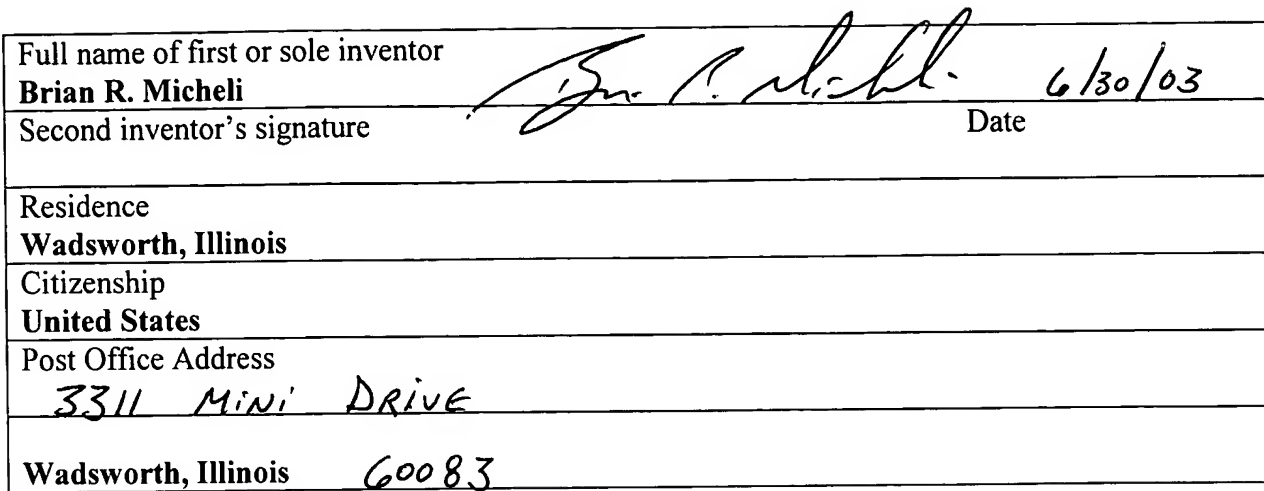 Full name of first or sole inventor
Brian R. Micheli 6/30/03
Second inventor's signature Date
Residence
Wadsworth, Illinois
Citizenship
United States
Post Office Address
3311 MiNi DRivE
Wadsworth, Illinois 60083